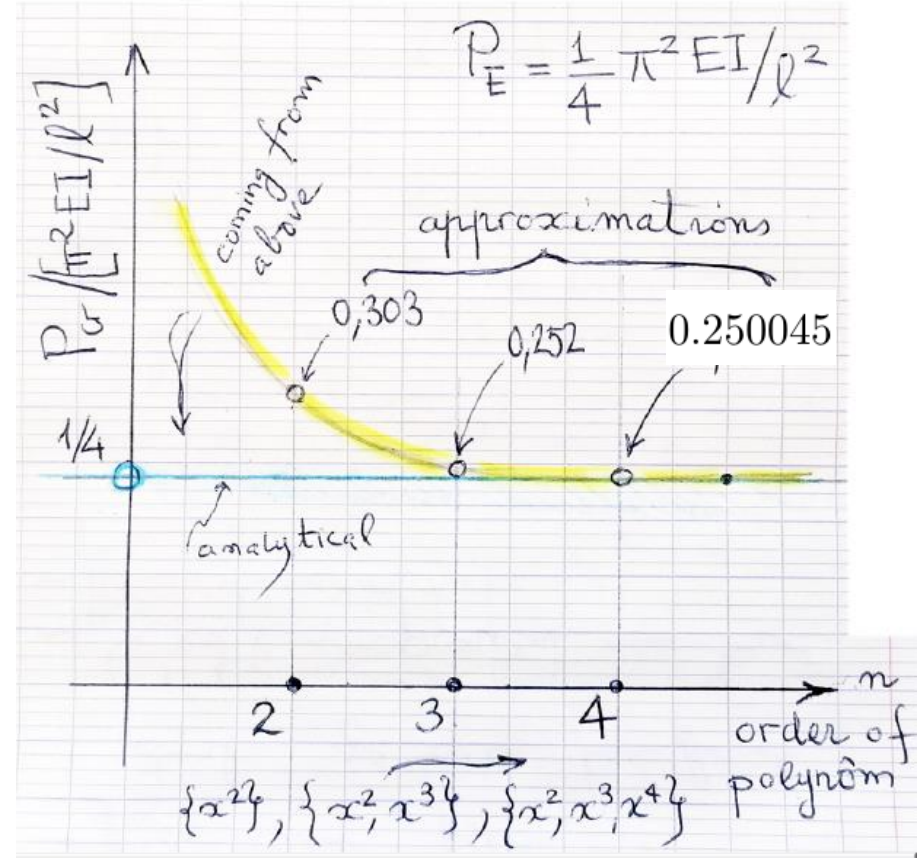 P_E = 1/4 π² EI/l²
P_cr/[π² EI/l²]
coming from
above
approximations
0,303
0,252
0.250045
1/4
analytical
2
3
4
n
order of
polynôm
{x²}, {x², x³}, {x², x³, x⁴}